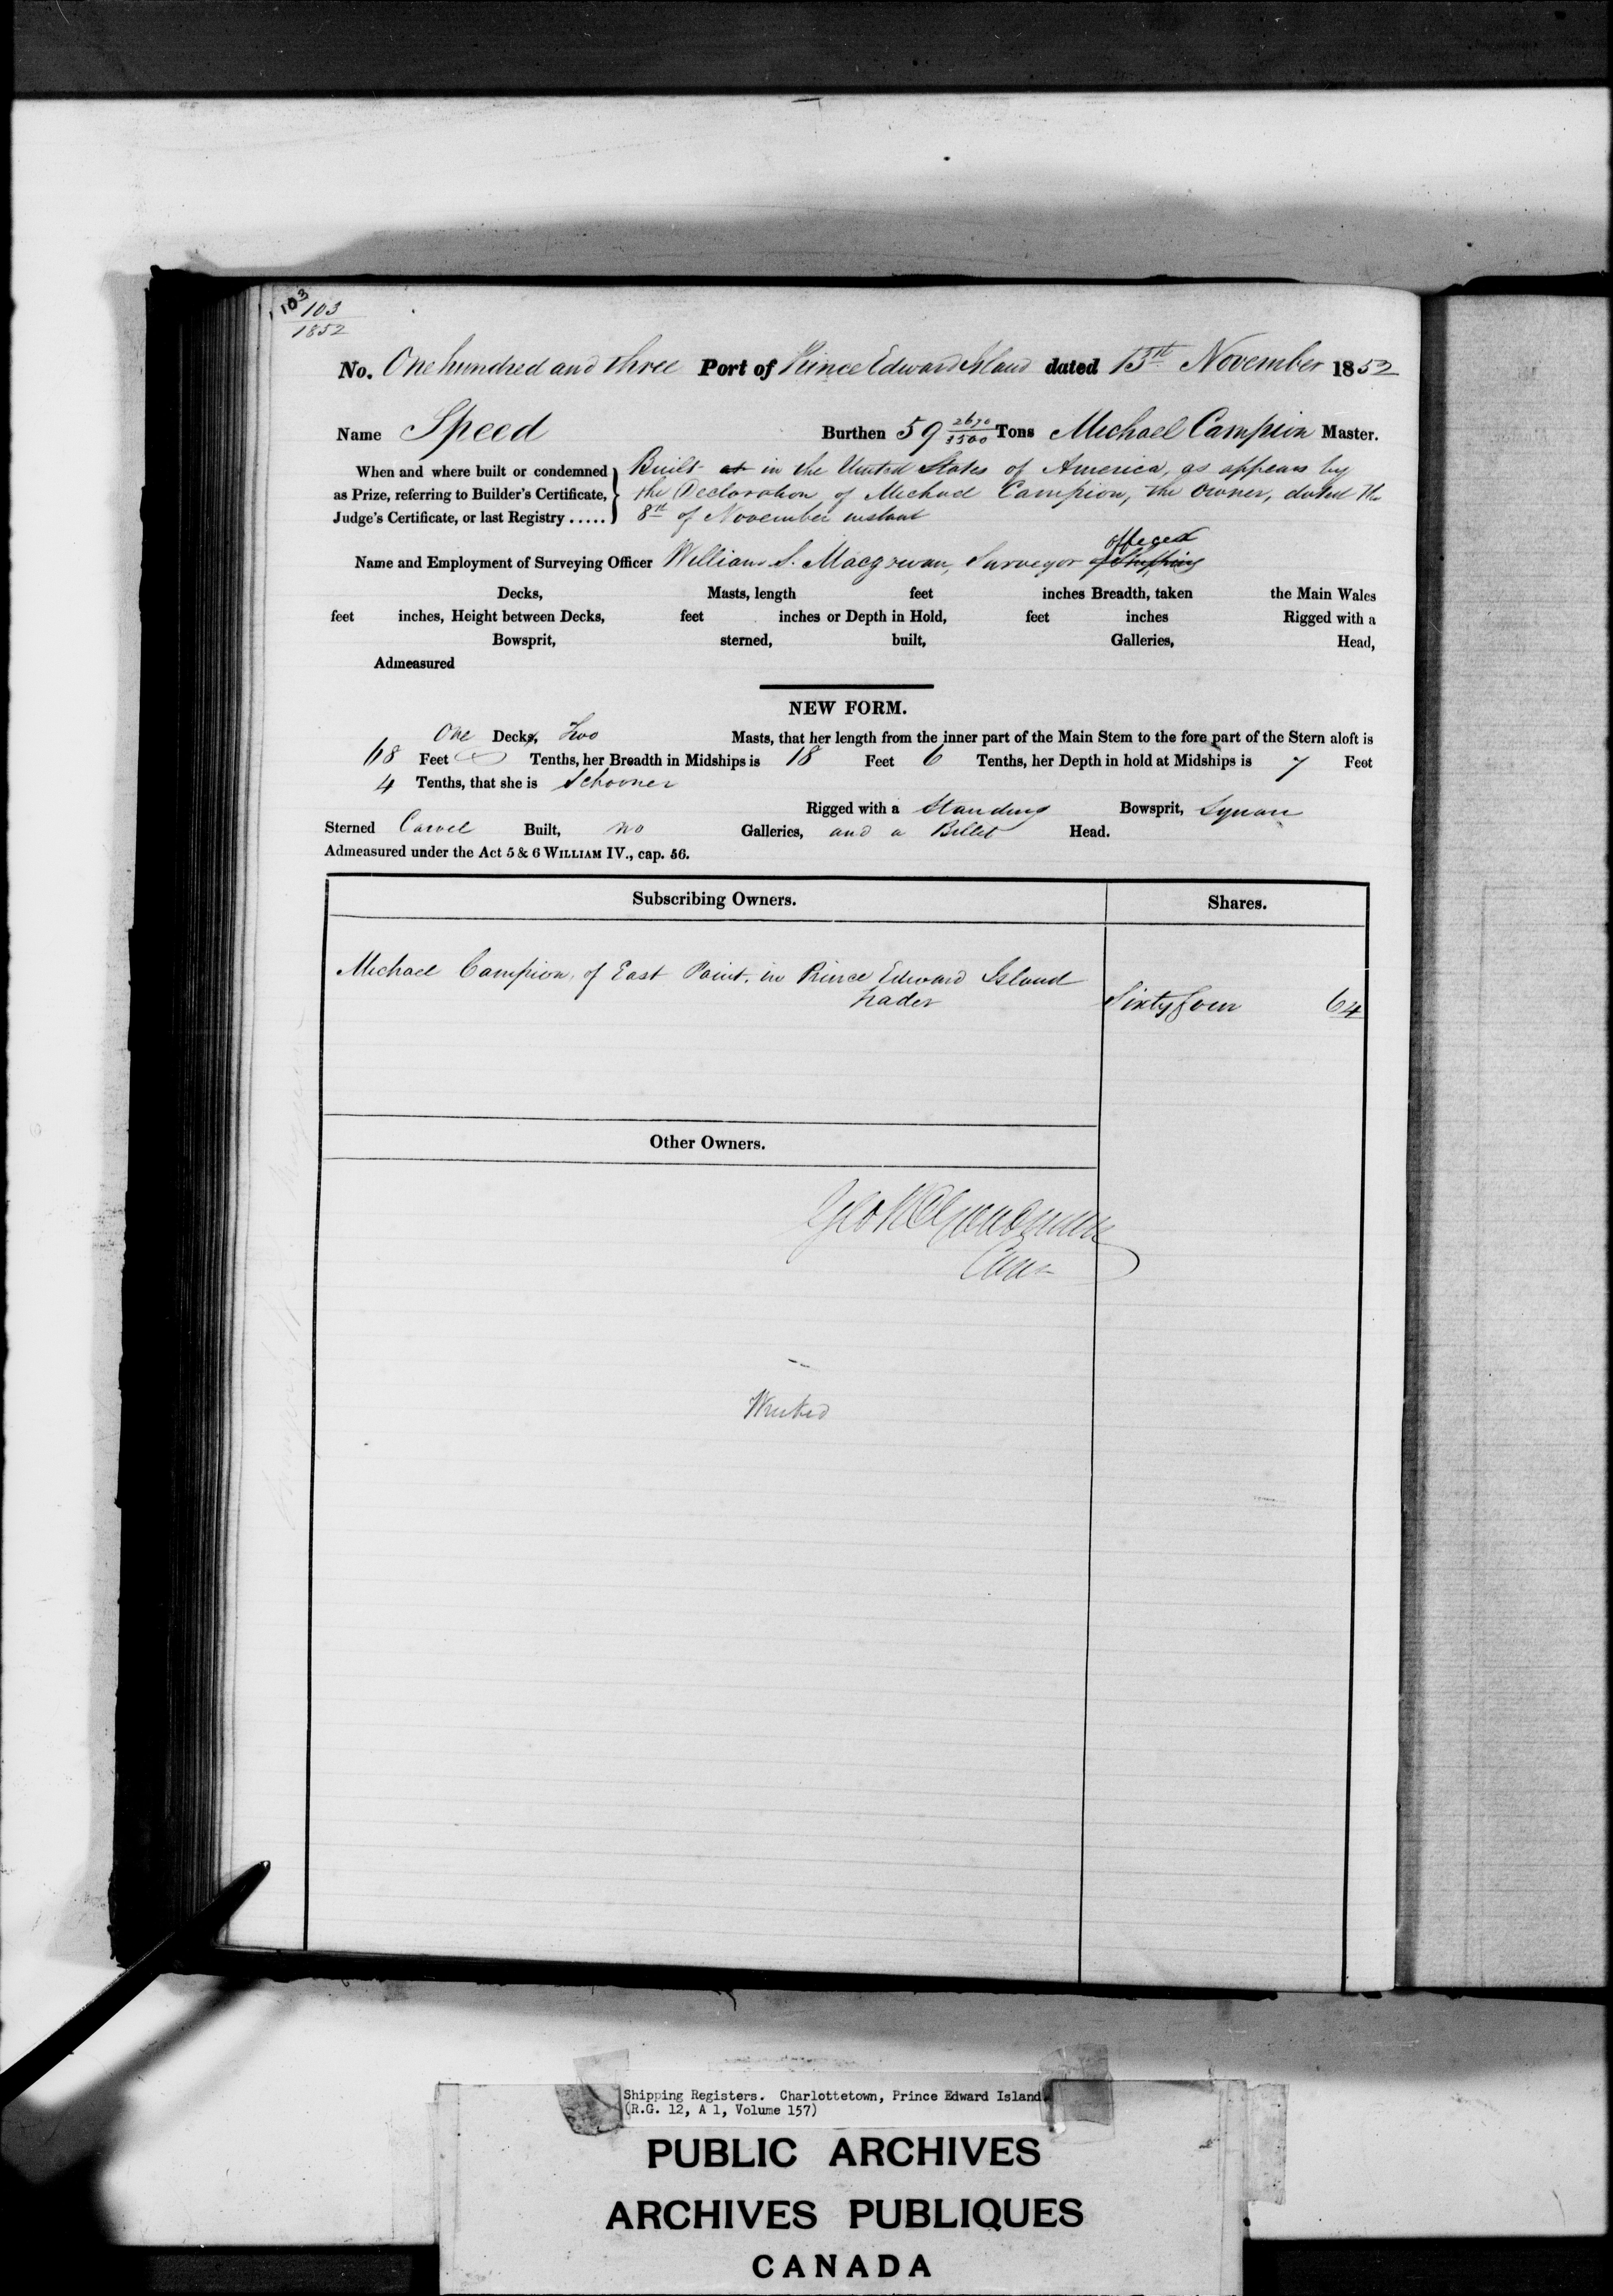 103 103
1852
No. One hundred and three Port of Prince Edward Island dated 13th November 1852
Name Speed Burthen 59 2670/3500 Tons Michael Campion Master.
When and where built or condemned as Prize, referring to Builder's Certificate, Judge's Certificate, or last Registry .....
Built at in the United States of America, as appears by
the Declaration of Michael Campion, the owner, dated the
8th of November instant
Name and Employment of Surveying Officer William S. Macgowan, Surveyor of Shipping
Decks, Masts, length feet inches Breadth, taken the Main Wales
feet inches, Height between Decks, feet inches or Depth in Hold, feet inches Rigged with a
Bowsprit, sterned, built, Galleries, Head,
Admeasured
NEW FORM.
One Decks, Two Masts, that her length from the inner part of the Main Stem to the fore part of the Stern aloft is
68 Feet 0 Tenths, her Breadth in Midships is 18 Feet 6 Tenths, her Depth in hold at Midships is 7 Feet
4 Tenths, that she is Schooner
Rigged with a Standing Bowsprit, Square
Sterned Carvel Built, no Galleries, and a Billet Head.
Admeasured under the Act 5 & 6 WILLIAM IV., cap. 56.
Subscribing Owners. Shares.
Michael Campion, of East Point, in Prince Edward Island
trader Sixty four 64
Other Owners.
Wrecked
Shipping Registers. Charlottetown, Prince Edward Island.
(R.G. 12, A 1, Volume 157)
PUBLIC ARCHIVES
ARCHIVES PUBLIQUES
CANADA